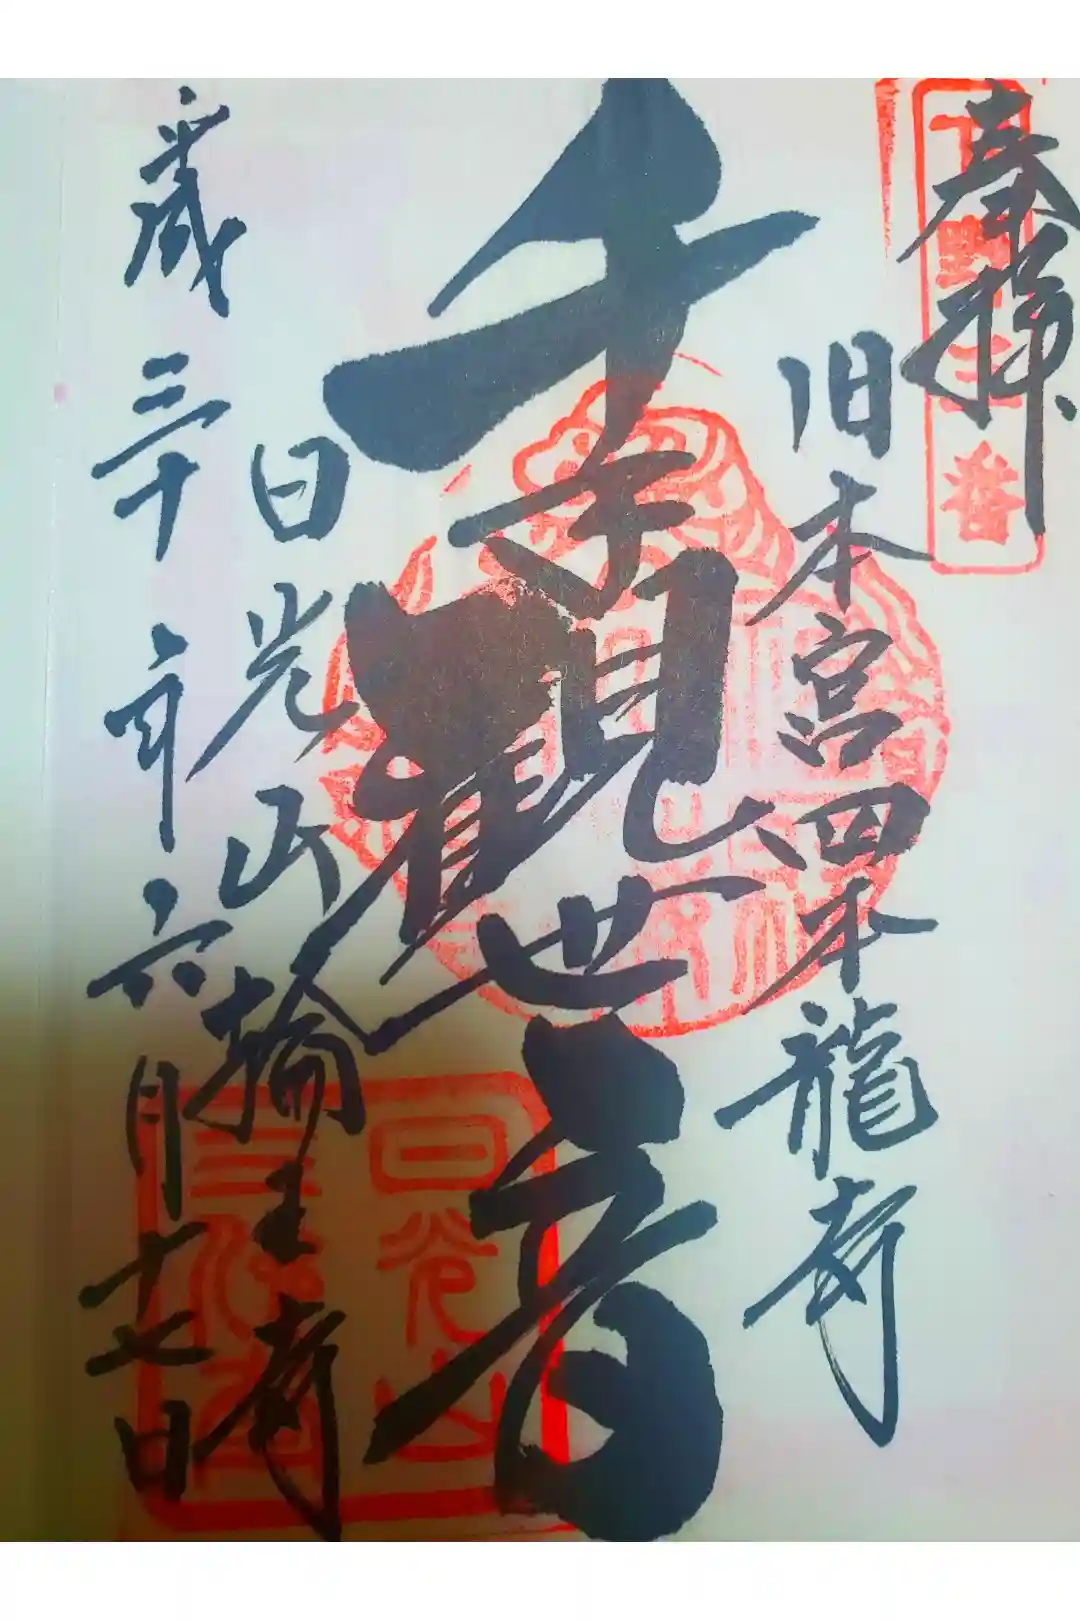 奉拝
旧本宮四本龍寺
千手觀世音
日光山輪王寺
平成三十年六月十七日
日光山